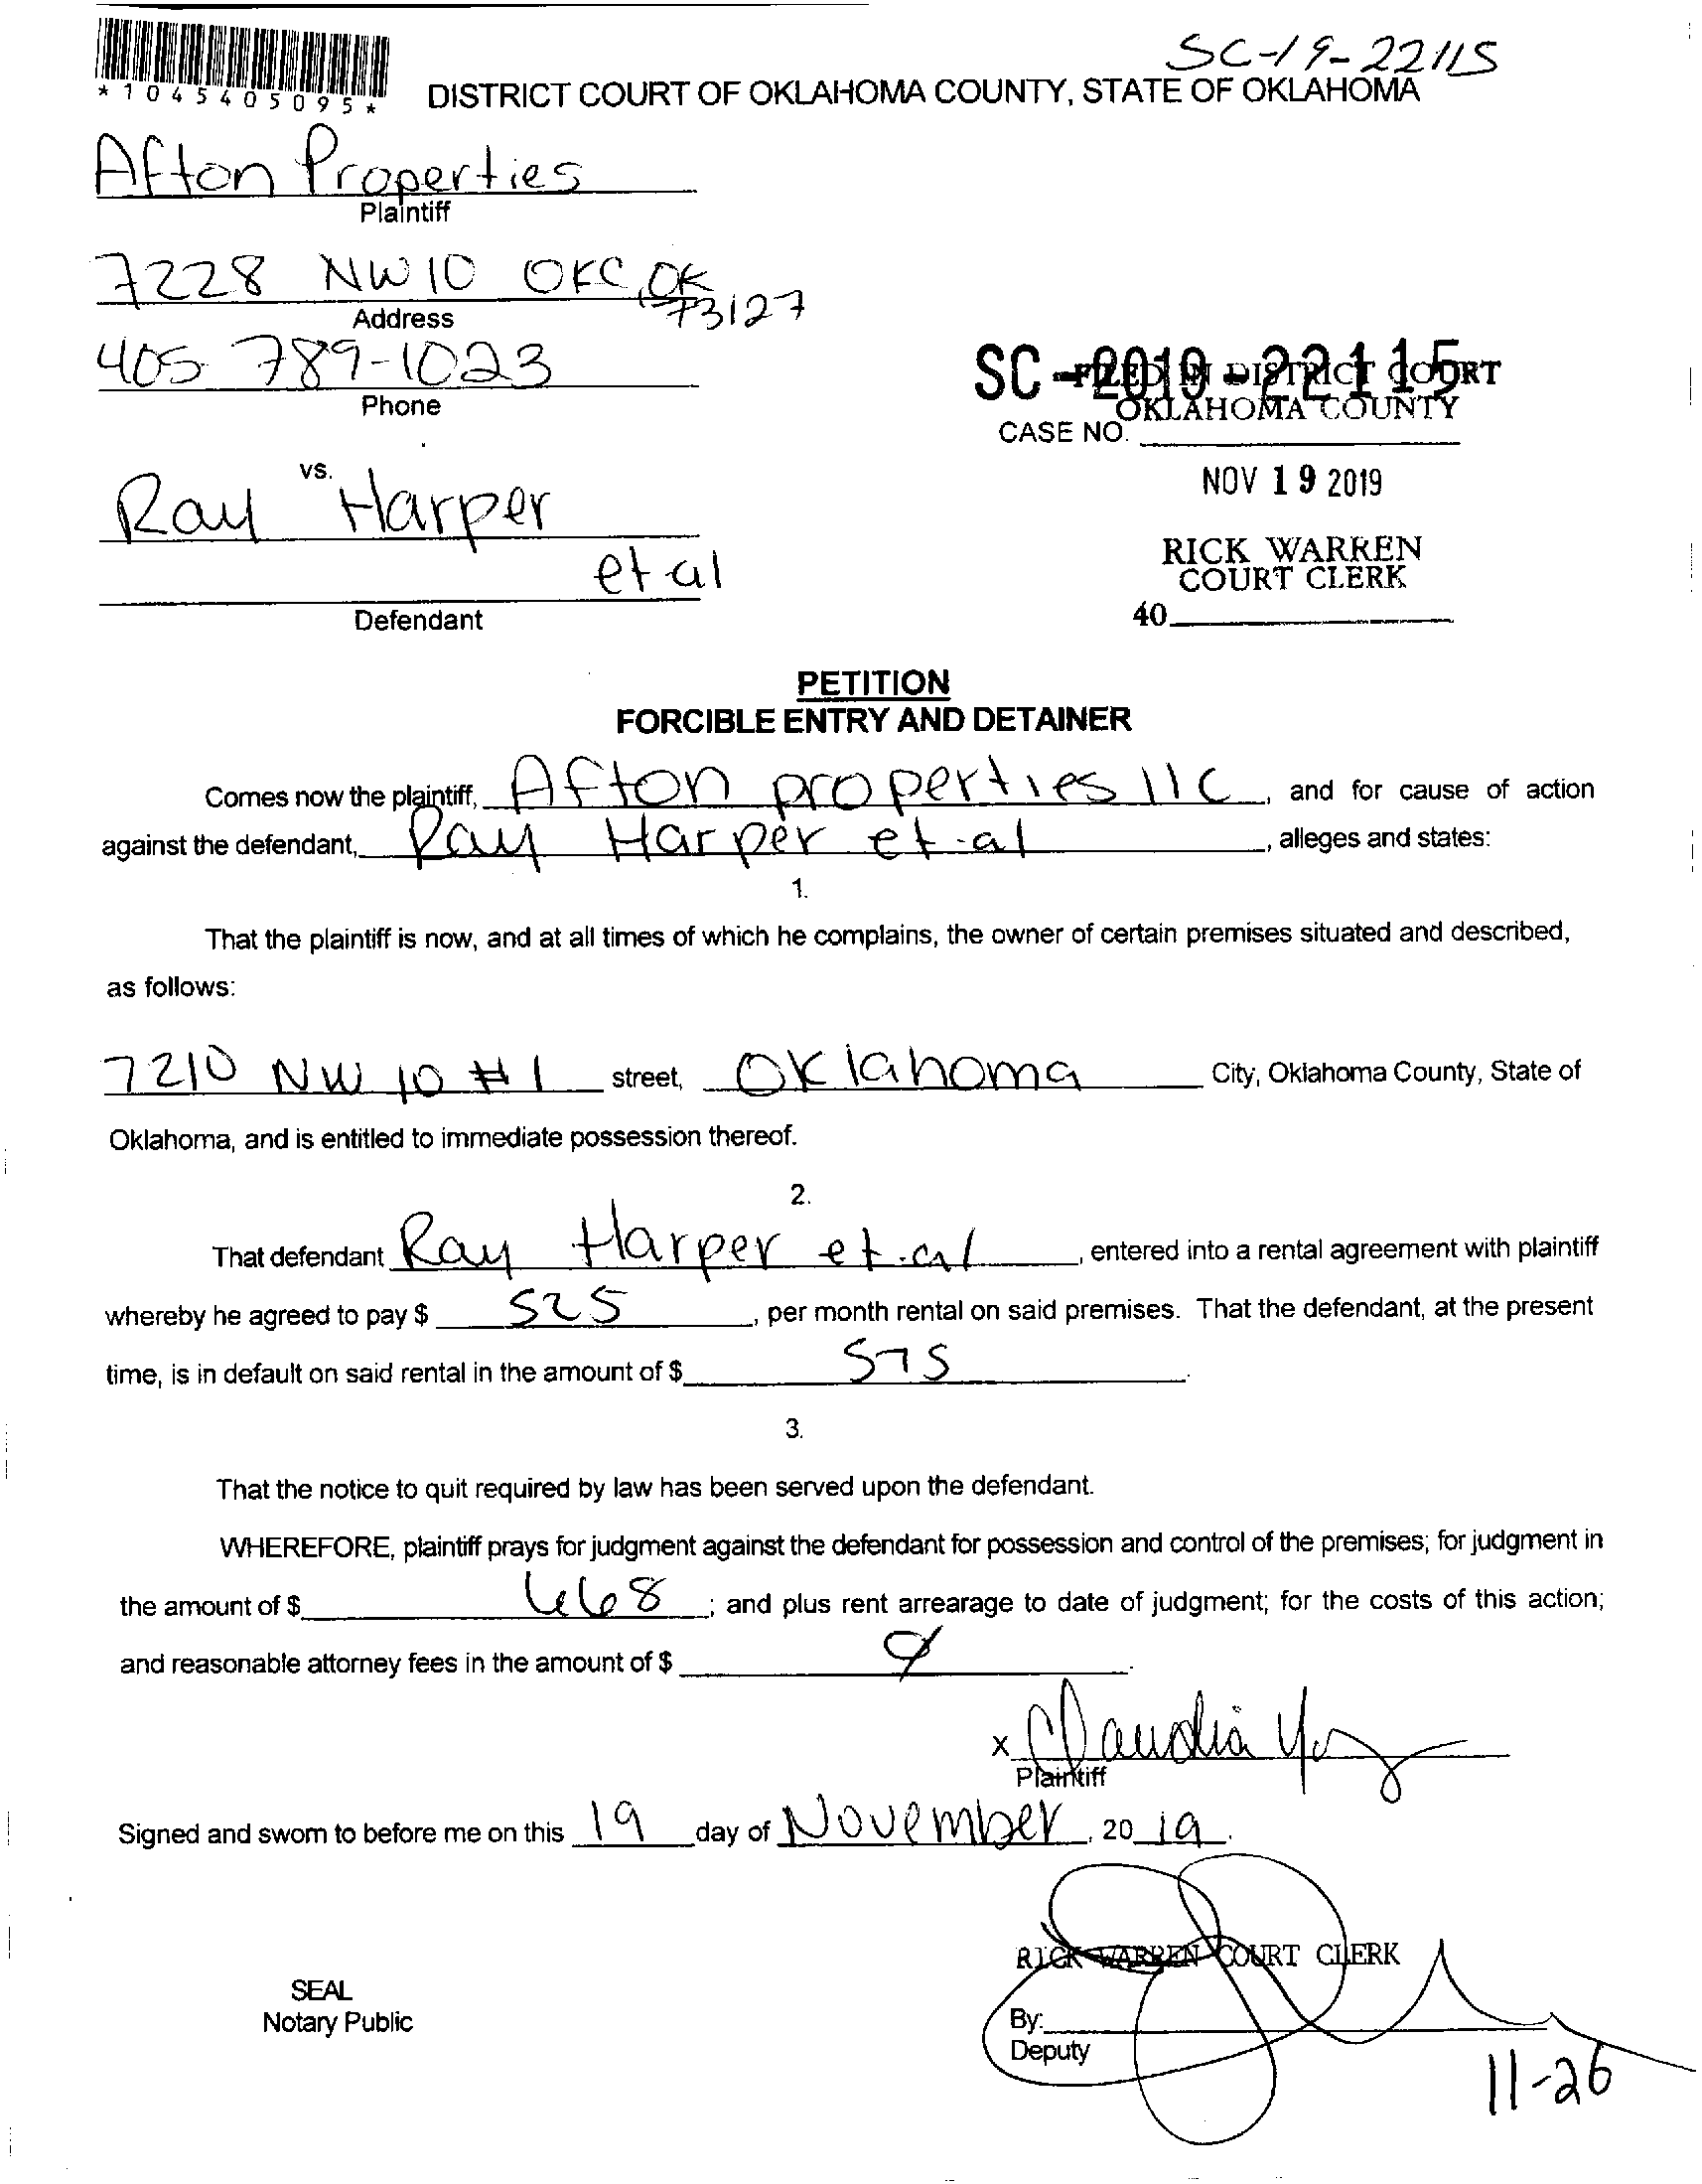 SC-19-22115
*1045405095*
DISTRICT COURT OF OKLAHOMA COUNTY, STATE OF OKLAHOMA
Afton Properties
Plaintiff
7228 NW 10 OKC, OK
73127
Address
405 789-1023
Phone
SC-2019-22115
FILED IN DISTRICT COURT
OKLAHOMA COUNTY
CASE NO.
vs.
NOV 19 2019
Ray Harper
et al
RICK WARREN
COURT CLERK
Defendant
40
PETITION
FORCIBLE ENTRY AND DETAINER
Comes now the plaintiff, Afton properties llc, and for cause of action
against the defendant, Ray Harper et al, alleges and states:
1.
That the plaintiff is now, and at all times of which he complains, the owner of certain premises situated and described,
as follows:
7210 NW 10 #1 street, Oklahoma City, Oklahoma County, State of
Oklahoma, and is entitled to immediate possession thereof.
2.
That defendant Ray Harper et. al, entered into a rental agreement with plaintiff
whereby he agreed to pay $ 525, per month rental on said premises. That the defendant, at the present
time, is in default on said rental in the amount of $ 575.
3.
That the notice to quit required by law has been served upon the defendant.
WHEREFORE, plaintiff prays for judgment against the defendant for possession and control of the premises; for judgment in
the amount of $ 668; and plus rent arrearage to date of judgment; for the costs of this action;
and reasonable attorney fees in the amount of $
x Claudia
Plaintiff
Signed and sworn to before me on this 19 day of November, 2019.
RICK WARREN COURT CLERK
SEAL
Notary Public
By:
Deputy
11-26